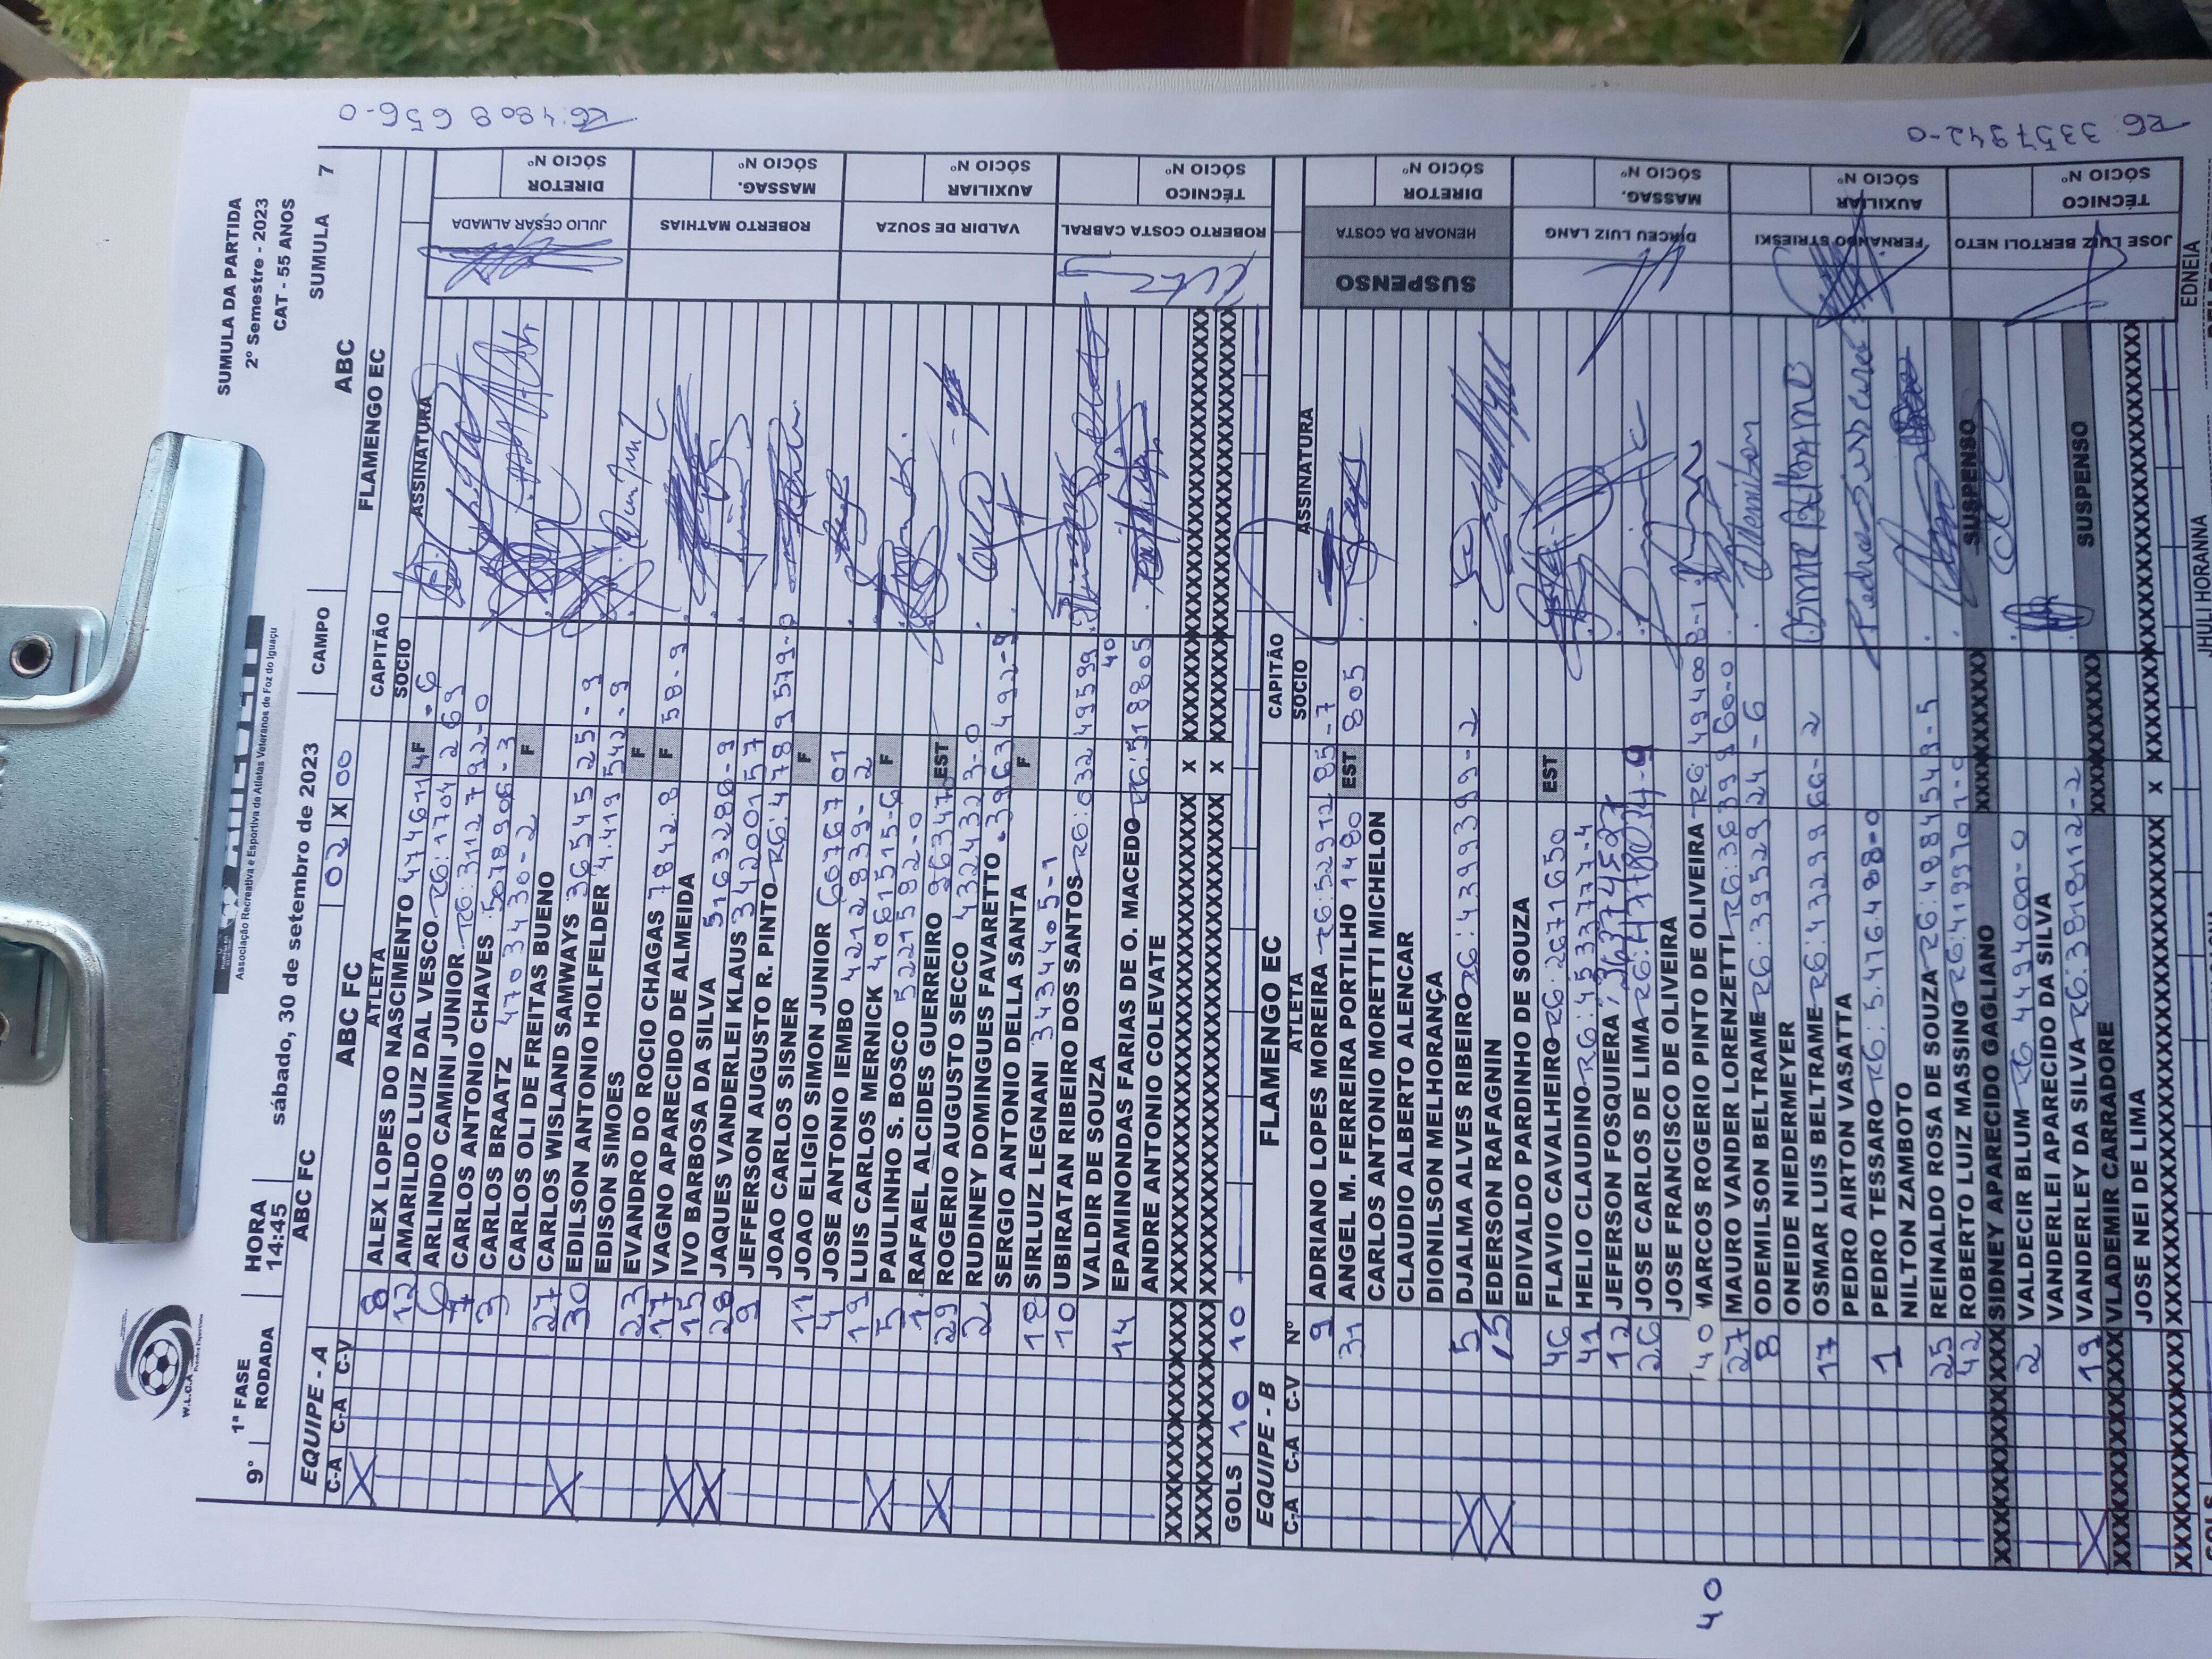 SUMULA DA PARTIDA
2º Semestre - 2023
CAT - 55 ANOS
W.L.C.A
Associação Recreativa e Esportiva de Atletas Veteranos de Foz do Iguaçu
9ª 1ª FASE RODADA HORA 14:45 sábado, 30 de setembro de 2023 CAMPO ABC SUMULA 7
ABC FC 02 X 00 FLAMENGO EC
EQUIPE - A ABC FC CAPITÃO
C-A C-A C-V ATLETA SOCIO ASSINATURA
8 ALEX LOPES DO NASCIMENTO 4746114F-6
12 AMARILDO LUIZ DAL VESCO RG:1704269
6 ARLINDO CAMINI JUNIOR RG:3112792-0
7 CARLOS ANTONIO CHAVES 5078906-3
3 CARLOS BRAATZ 4703430-2 F
CARLOS OLI DE FREITAS BUENO
27 CARLOS WISLAND SAMWAYS 3654525-9
30 EDILSON ANTONIO HOLFELDER 4.419542-9
EDISON SIMOES F
23 EVANDRO DO ROCIO CHAGAS 7842.8 F 58-9
17 VAGNO APARECIDO DE ALMEIDA
15 IVO BARBOSA DA SILVA 5163286-9
28 JAQUES VANDERLEI KLAUS 34200157
9 JEFFERSON AUGUSTO R. PINTO RG:4789579-0
JOAO CARLOS SISNER F
11 JOAO ELIGIO SIMON JUNIOR 6076701
4 JOSE ANTONIO IEMBO 4212839-2
19 LUIS CARLOS MERNICK 4061515-6 F
5 PAULINHO S. BOSCO 5221582-0
1 RAFAEL ALCIDES GUERREIRO 963470 EST
29 ROGERIO AUGUSTO SECCO 4324323-0
2 RUDINEY DOMINGUES FAVARETTO 3963492-9
SERGIO ANTONIO DELLA SANTA F
18 SIRLUIZ LEGNANI 3434405-1
10 UBIRATAN RIBEIRO DOS SANTOS RG:03249599
VALDIR DE SOUZA 40
14 EPAMINONDAS FARIAS DE O. MACEDO RG:518805
ANDRE ANTONIO COLEVATE
GOLS 10 10
JULIO CESAR ALMADA DIRETOR SÓCIO Nº
RG:4809656-0
ROBERTO MATHIAS MASSAG. SÓCIO Nº
VALDIR DE SOUZA AUXILIAR SÓCIO Nº
ROBERTO COSTA CABRAL TÉCNICO SÓCIO Nº
EQUIPE - B FLAMENGO EC CAPITÃO
C-A C-A C-V Nº ATLETA SOCIO ASSINATURA
9 ADRIANO LOPES MOREIRA RG:5291285-7
31 ANGEL M. FERREIRA PORTILHO 1480 EST 805
CARLOS ANTONIO MORETTI MICHELON
CLAUDIO ALBERTO ALENCAR
DIONILSON MELHORANÇA
5 DJALMA ALVES RIBEIRO RG:4399399-2
15 EDERSON RAFAGNIN
EDIVALDO PARDINHO DE SOUZA EST
46 FLAVIO CAVALHEIRO RG:2671650
41 HELIO CLAUDINO RG:4533777-4
12 JEFERSON FOSQUIERA
26 JOSE CARLOS DE LIMA RG:4778034-9
JOSE FRANCISCO DE OLIVEIRA
40 MARCOS ROGERIO PINTO DE OLIVEIRA RG:494008-1
27 MAURO VANDER LORENZETTI RG:3639960-0
8 ODEMILSON BELTRAME RG:3952924-6
ONEIDE NIEDERMEYER
17 OSMAR LUIS BELTRAME RG:4329966-2 OSMAR BELTRAME
PEDRO AIRTON VASATTA
1 PEDRO TESSARO RG:5.476.488-0
NILTON ZAMBOTO
25 REINALDO ROSA DE SOUZA RG:4884549-5
42 ROBERTO LUIZ MASSING
SIDNEY APARECIDO GAGLIANO SUSPENSO
2 VALDECIR BLUM RG 4494000-0
VANDERLEI APARECIDO DA SILVA
19 VANDERLEY DA SILVA RG:3818112-2
VLADEMIR CARRADORE SUSPENSO
JOSE NEI DE LIMA
SUSPENSO HENOAR DA COSTA DIRETOR SÓCIO Nº
DIRCEU LUIZ LANG MASSAG. SÓCIO Nº
FERNANDO STRIESKI AUXILIAR SÓCIO Nº
JOSE LUIZ BERTOLI NETO TÉCNICO SÓCIO Nº
RG:3357942-0
40
GOLS
JHULI HORANNA
EDNEIA